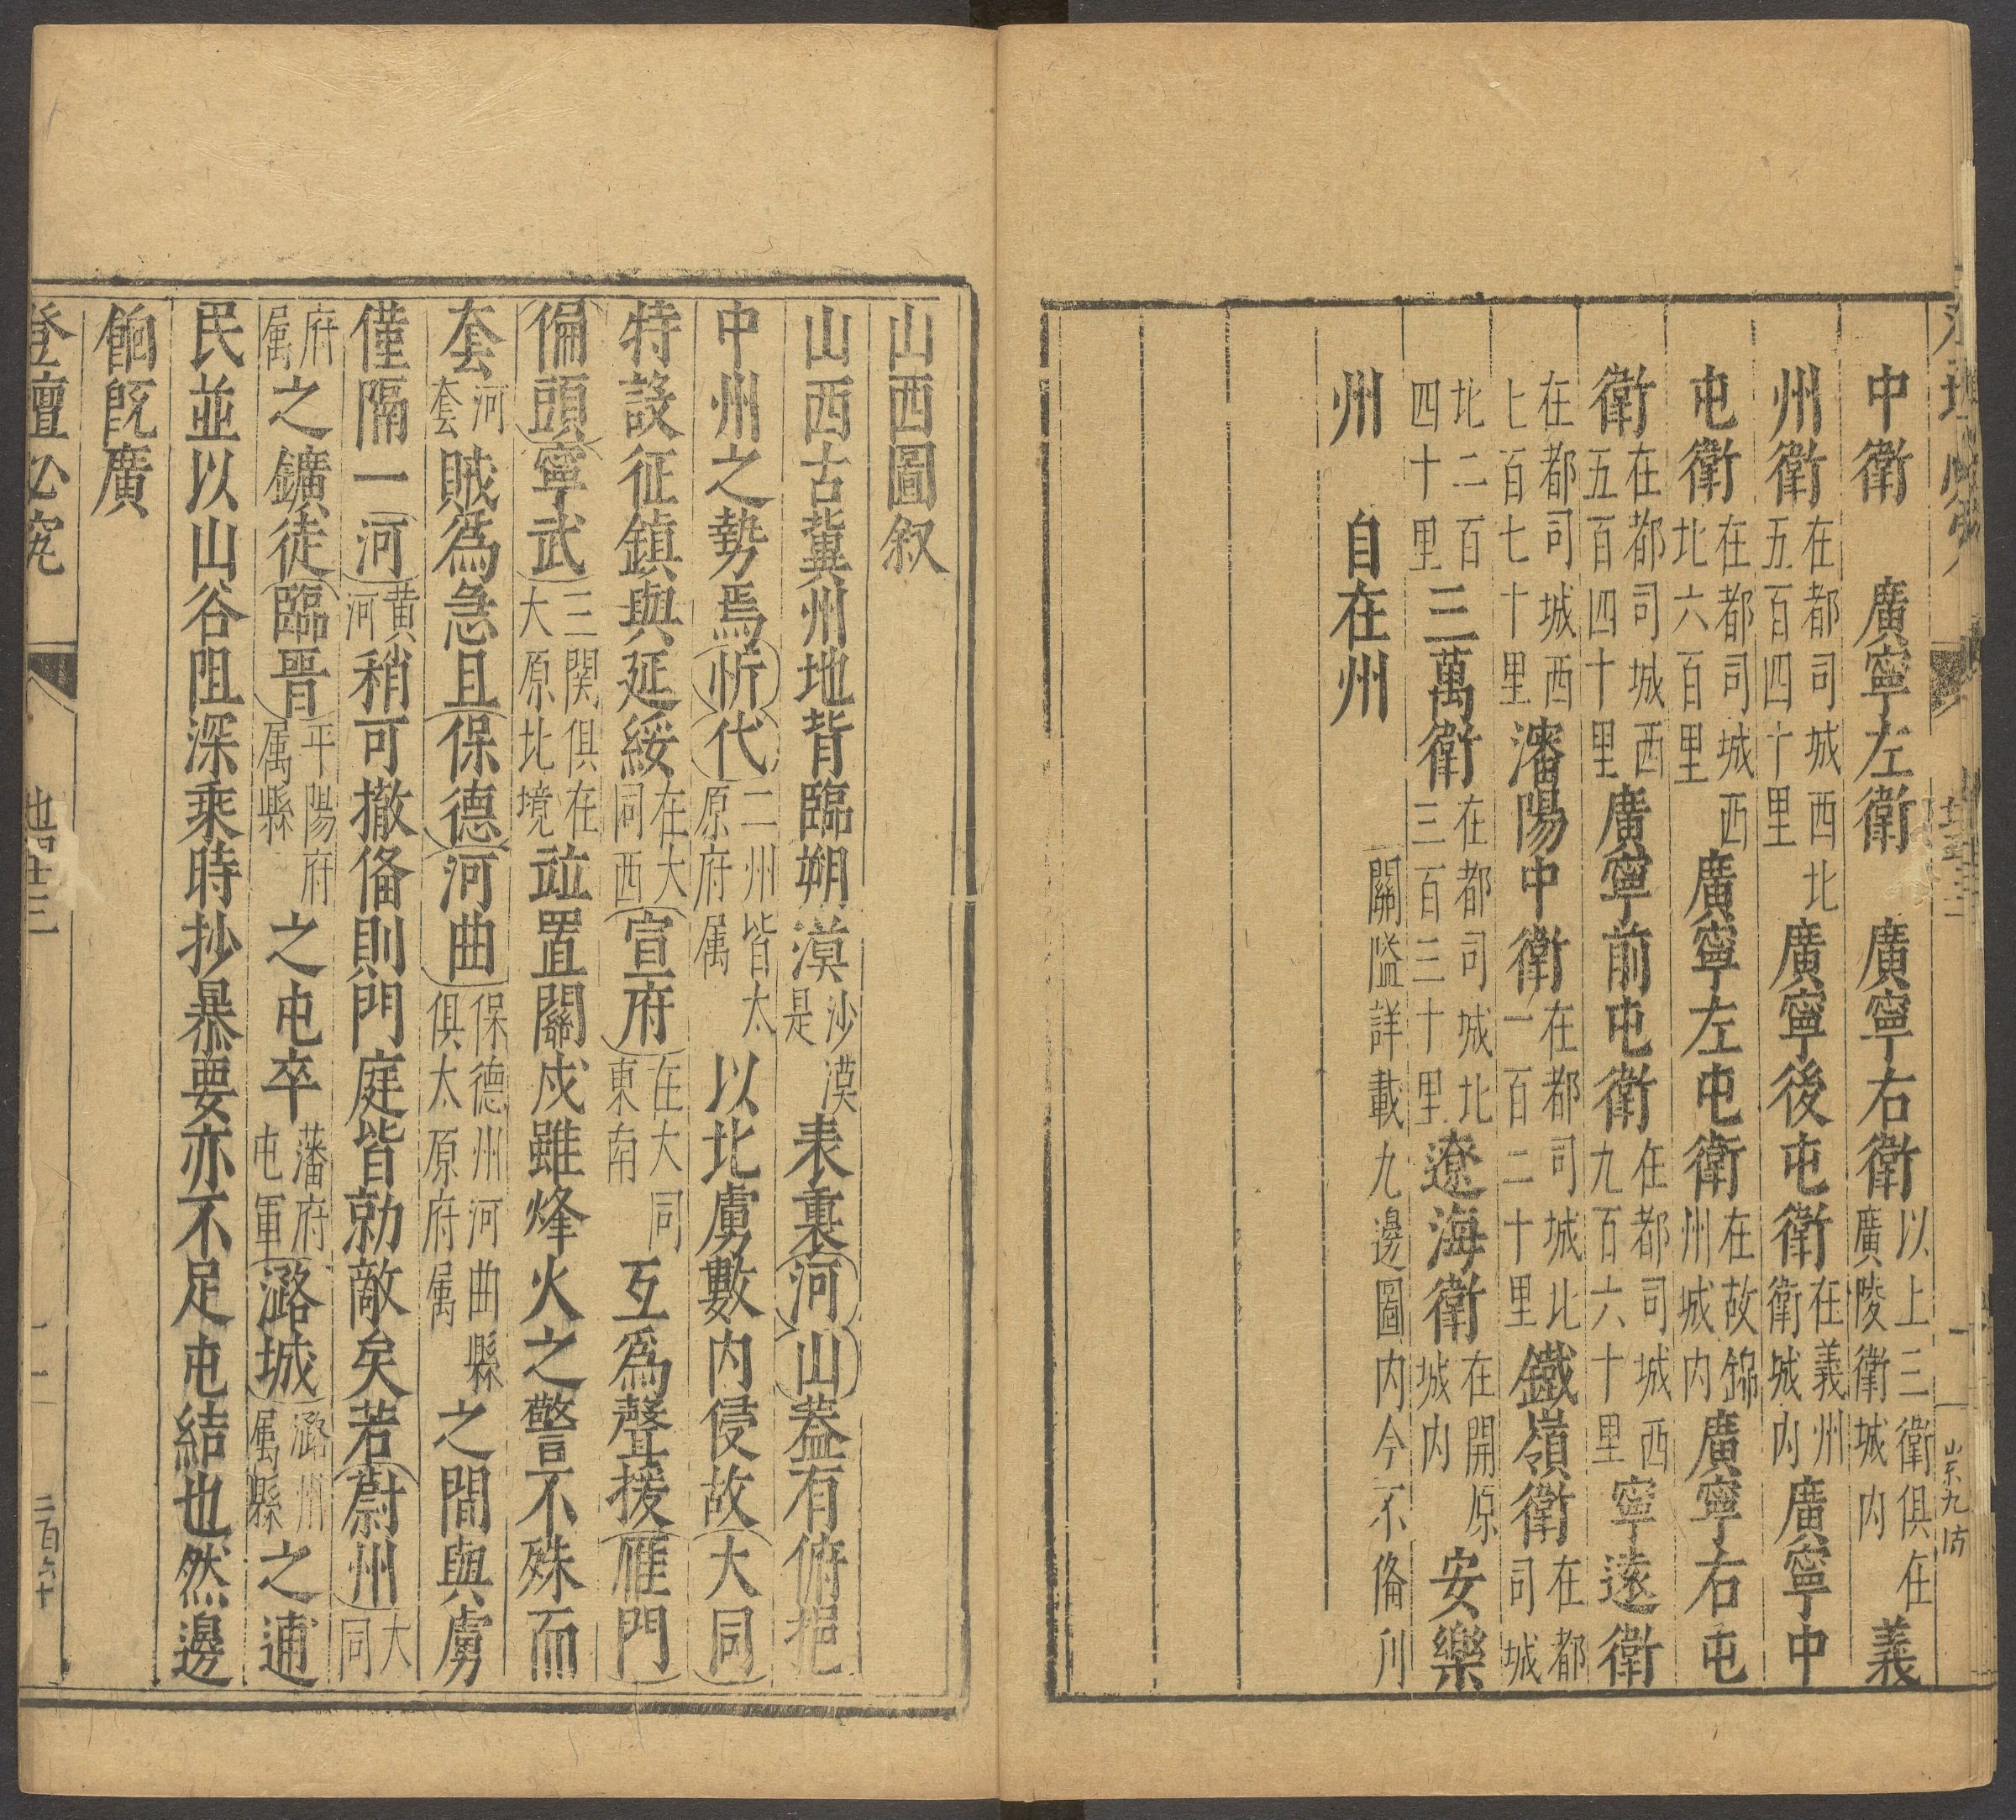 中衛 廣寧左衛 廣寧右衛以上三衛俱在廣陵衛城内義
州衛在都司城西北五百四十里廣寧後屯衛在義州衛城内廣寧中
屯衛在都司城西北六百里廣寧左屯衛在故錦州城内廣寧右屯
衛在都司城西五百四十里廣寧前屯衛在都司城西九百六十里寧遠衛
在都司城西七百七十里瀋陽中衛在都司城北一百二十里鐵嶺衛在都司城
北二百四十里三萬衛在都司城北三百三十里遼海衛在開原城内安樂
州 自在州
關隘詳載九邊圖内今不俻刋
山西圖叙
山西古冀州地背臨朔漠沙漠是表裏河山葢有俯挹
中州之勢焉忻代二州皆太原府属以北虜數内侵故大同
特設征鎮與延綏在大同西宣府在大同東南互爲聲援雁門
偏頭寧武三関俱在大原北境竝置關戍雖烽火之警不殊而
套河套賊爲急且保德河曲保德州河曲縣俱太原府属之間與虜
僅隔一河黄河稍可撤俻則門庭皆勍敵矣若蔚州大同
府属之鑛徒臨晋平陽府属縣之屯卒藩府屯軍潞城潞州属縣之逋
民並以山谷阻深乘時抄暴要亦不足屯結也然邊
餉既廣
登壇必究
二百六十